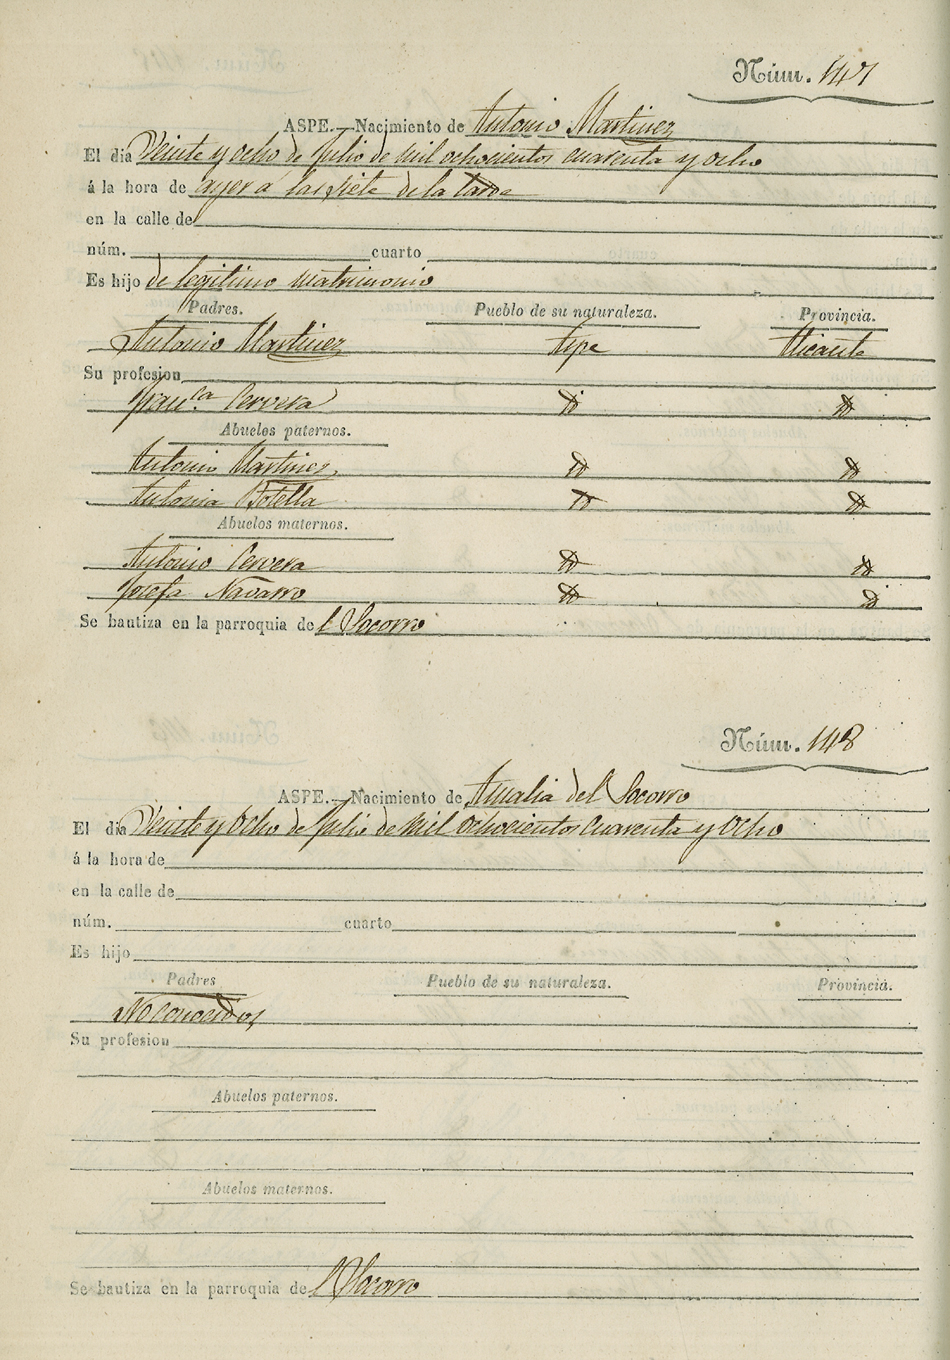 Núm. 147
ASPE.—Nacimiento de Antonio Martinez
El dia Veinte y ocho de Julio de mil ochocientos cuarenta y ocho
á la hora de ayer á las siete de la tarde
en la calle de
núm. cuarto
Es hijo de legitimo matrimonio
Padres. Pueblo de su naturaleza. Provincia.
Antonio Martinez Aspe Alicante
Su profesion
Fran.ca Cervera id id
Abuelos paternos.
Antonio Martinez id id
Antonia Botella id id
Abuelos maternos.
Antonio Cervera id id
Josefa Navarro id id
Se bautiza en la parroquia de l Socorro
Núm. 148
ASPE.—Nacimiento de Amalia del Socorro
El dia Veinte y Ocho de Julio de mil Ochocientos Cuarenta y Ocho
á la hora de
en la calle de
núm. cuarto
Es hijo
Padres Pueblo de su naturaleza. Provincia.
No conocidos
Su profesion
Abuelos paternos.
Abuelos maternos.
Se bautiza en la parroquia de l Socorro